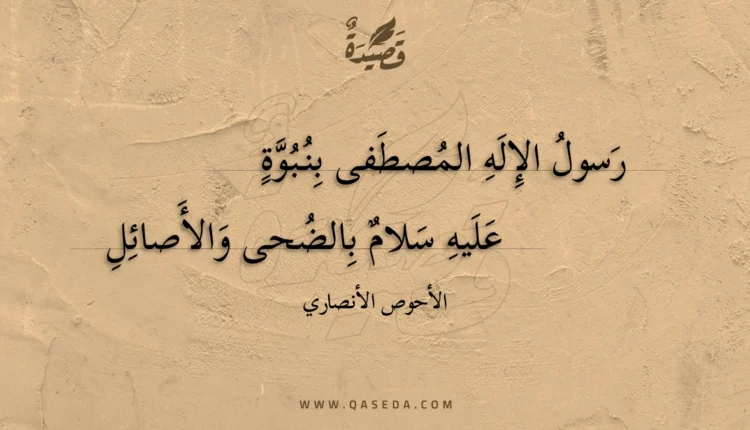 قَصِيْدَةٌ
رَسولُ الإِلَهِ المُصطَفى بِنُبُوَّةٍ
عَلَيهِ سَلامٌ بِالضُحى وَالأَصائِلِ
الأحوص الأنصاري
WWW.QASEDA.COM